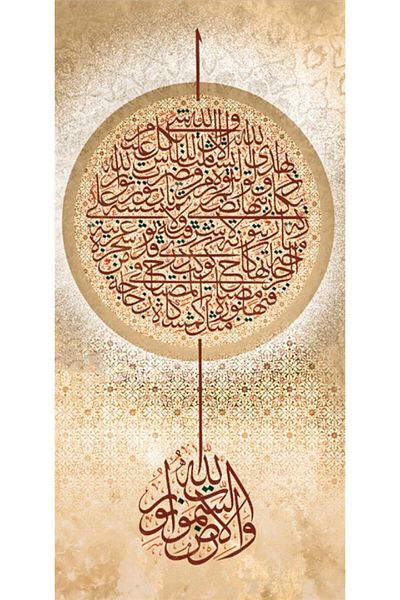 الله نور السموات والارض
مثل نوره كمشكاة فيها مصباح المصباح في زجاجة
الزجاجة كأنها كوكب دري يوقد من شجرة مباركة
زيتونة لا شرقية ولا غربية
يكاد زيتها يضيء ولو لم تمسسه نار نور على نور
يهدي الله لنوره من يشاء ويضرب الله الأمثال للناس
والله بكل شيء عليم